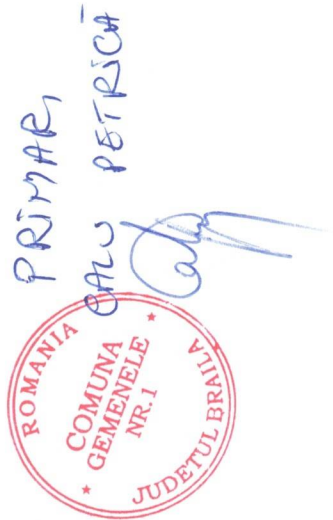 PRIMAR,
CALU PETRICĂ
ROMANIA
COMUNA
GEMENELE
NR. 1
JUDETUL BRAILA